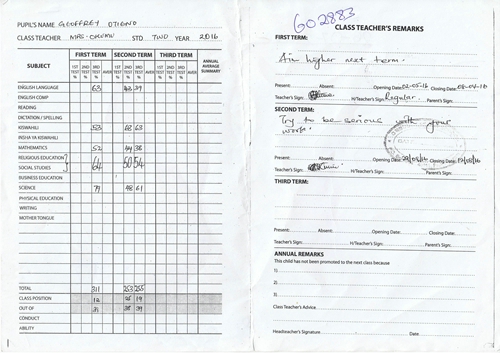 PUPIL'S NAME GEOFFREY OTIENO
CLASS TEACHER MRS. OKUMU STD TWO YEAR 2016
SUBJECT
FIRST TERM: SECOND TERM: THIRD TERM:
1ST TEST % 2ND TEST % 3RD TEST % AVER 1ST TEST % 2ND TEST % 3RD TEST % AVER 1ST TEST % 2ND TEST % 3RD TEST % AVER
ANNUAL AVERAGE SUMMARY
ENGLISH LANGUAGE 63 43 39
ENGLISH COMP
READING
DICTATION / SPELLING
KISWAHILI 53 68 63
INSHA YA KISWAHILI
MATHEMATICS 52 44 38
RELIGIOUS EDUCATION
SOCIAL STUDIES 64 50 54
BUSINESS EDUCATION
SCIENCE 79 48 61
PHYSICAL EDUCATION
WRITING
MOTHER TONGUE
TOTAL 311 253 255
CLASS POSITION 12 19
OUT OF 31 38 39
CONDUCT
ABILITY
602883
CLASS TEACHER'S REMARKS
FIRST TERM:
Aim higher next term.
Present: Absent: Opening Date: 02-05-16 Closing Date: 08-04-16
Teacher's Sign: H/Teacher's Sign: Regular. Parent's Sign:
SECOND TERM:
Try to be serious with your
work.
Present: Absent: Opening Date: Closing Date:
Teacher's Sign: H/Teacher's Sign: Parent's Sign:
THIRD TERM:
Present: Absent: Opening Date: Closing Date:
Teacher's Sign: H/Teacher's Sign: Parent's Sign:
ANNUAL REMARKS
This child has not been promoted to the next class because
1)
2)
3)
Class Teacher's Advice
Headteacher's Signature Date